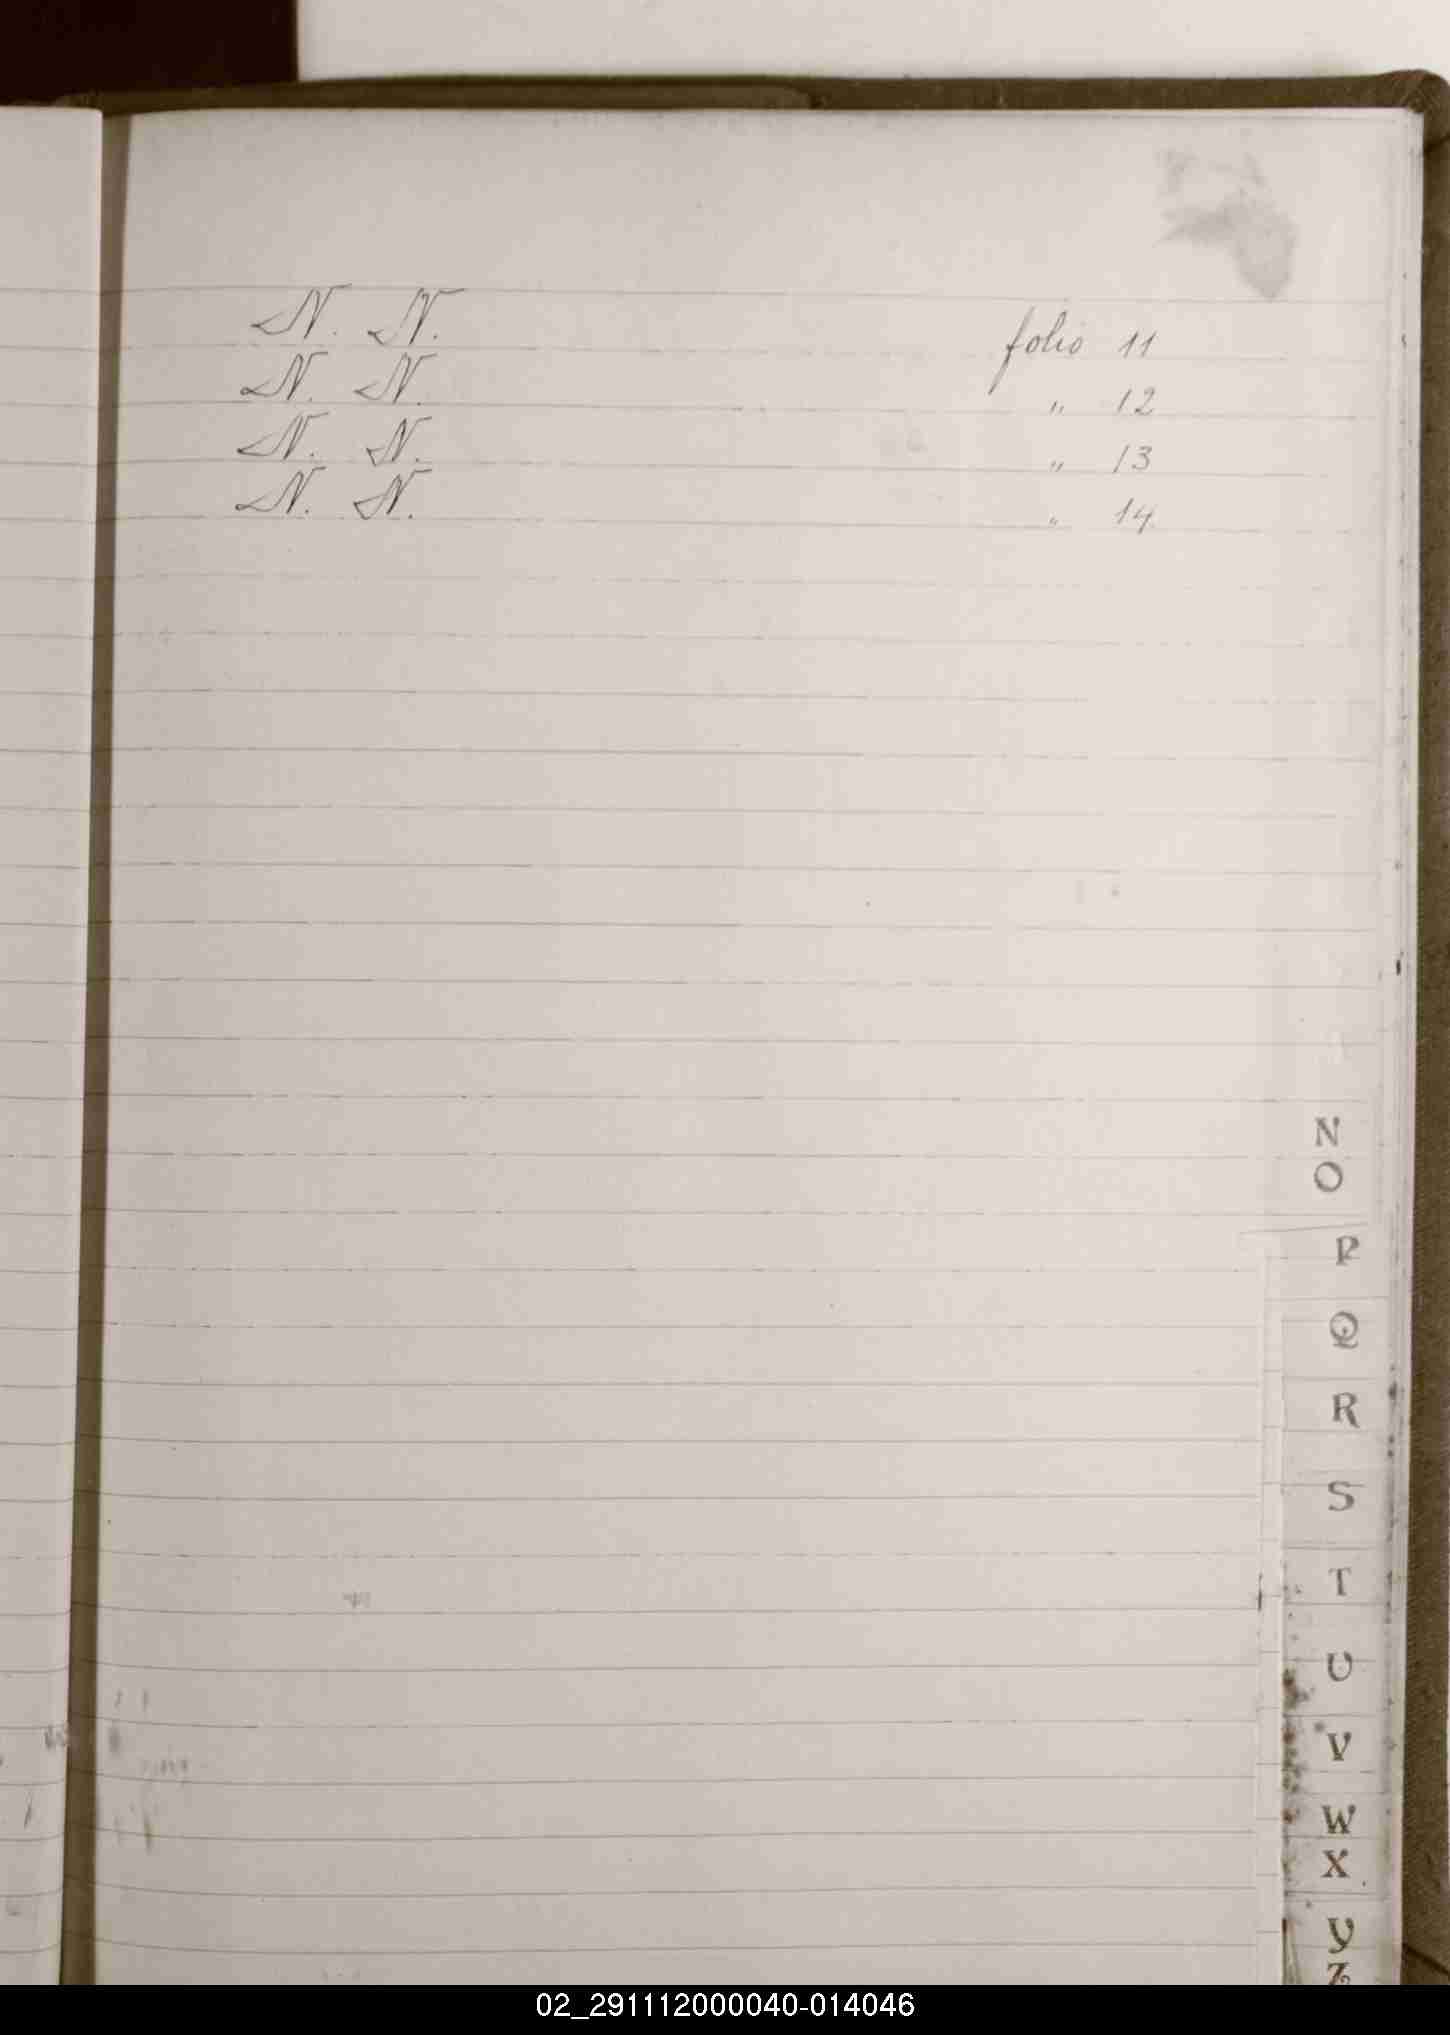 N. N. folio 11
N. N. " 12
N. N. " 13
N. N. " 14
N
O
P
Q
R
S
T
U
V
W
X
Y
Z
02_291112000040-014046